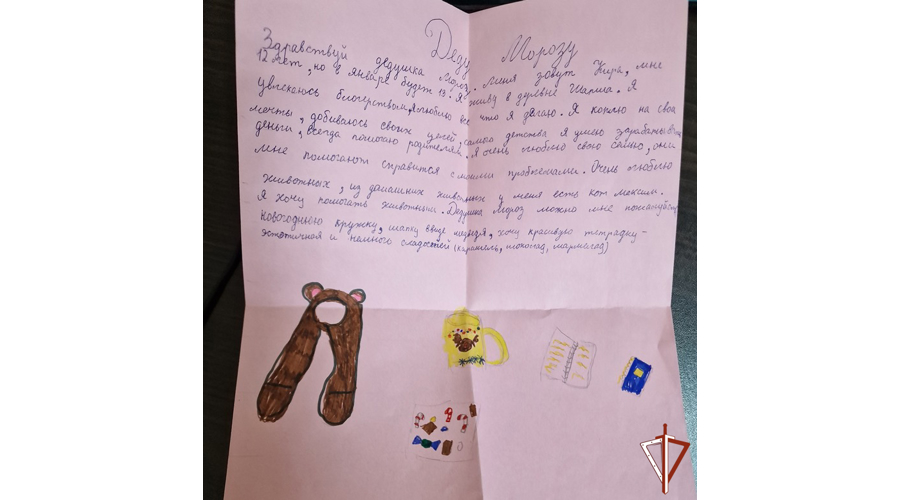 Деду Морозу
Здравствуй дедушка Мороз. Меня зовут Кира, мне
12 лет, но в январе будет 13. Я живу в деревне Шарига. Я
увлекаюсь блогерством, я люблю всё что я делаю. Я коплю на свои
мечты, добиваюсь своих целей, с самого детства я умею зарабатывать
деньги, всегда помогаю родителям. Я очень люблю свою семью, они
мне помогают справится с моими проблемами. Очень люблю
животных, из домашних животных у меня есть кот Максим.
Я хочу помогать животным. Дедушка Мороз можно мне пожалуйста
новогоднюю кружку, шапку ввиде медведя, хочу красивую тетрадку-
эстетичная и немного сладостей (карамель, шоколад, мармелад)